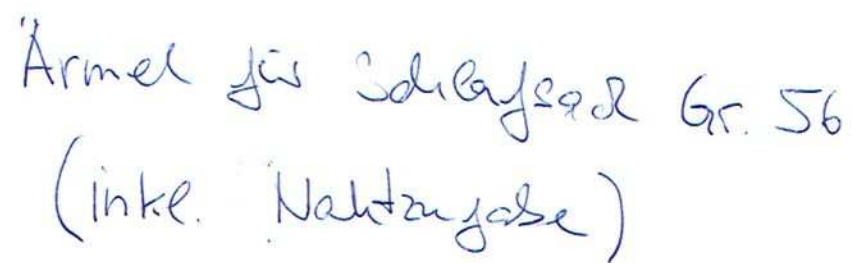 Ärmel für Schlafsack Gr. 56
(inkl. Nahtzugabe)